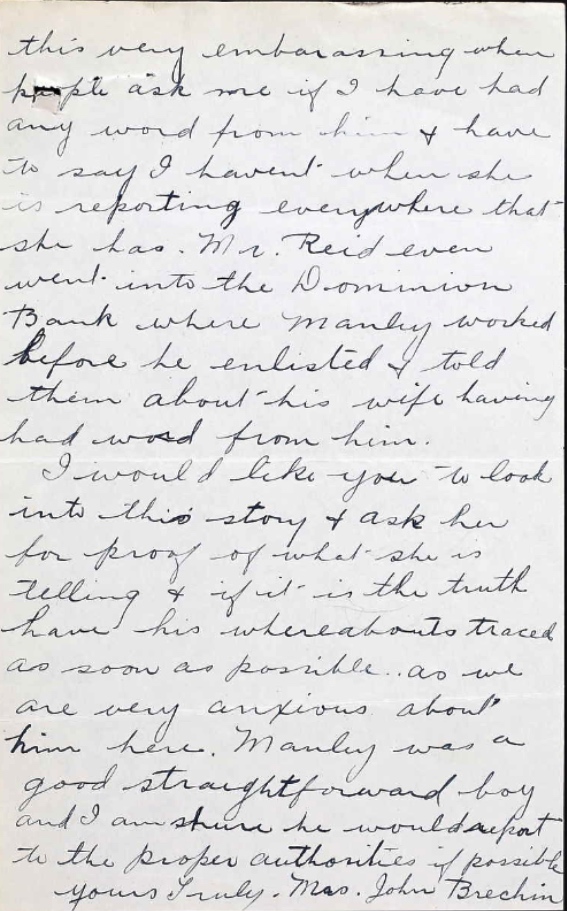 this very embarassing when
people ask me if I have had
any word from him & have
to say I havent when she
is reporting everywhere that
she has. Mr. Reid even
went into the Dominion
Bank where Manley worked
before he enlisted & told
them about his wife having
had word from him.
I would like you to look
into this story & ask her
for proof of what she is
telling & if it is the truth
have his whereabouts traced
as soon as possible. as we
are very anxious about
him here. Manley was a
good straightforward boy
and I am shure he would report
to the proper authorities if possible
yours Truly. Mrs. John Brechin